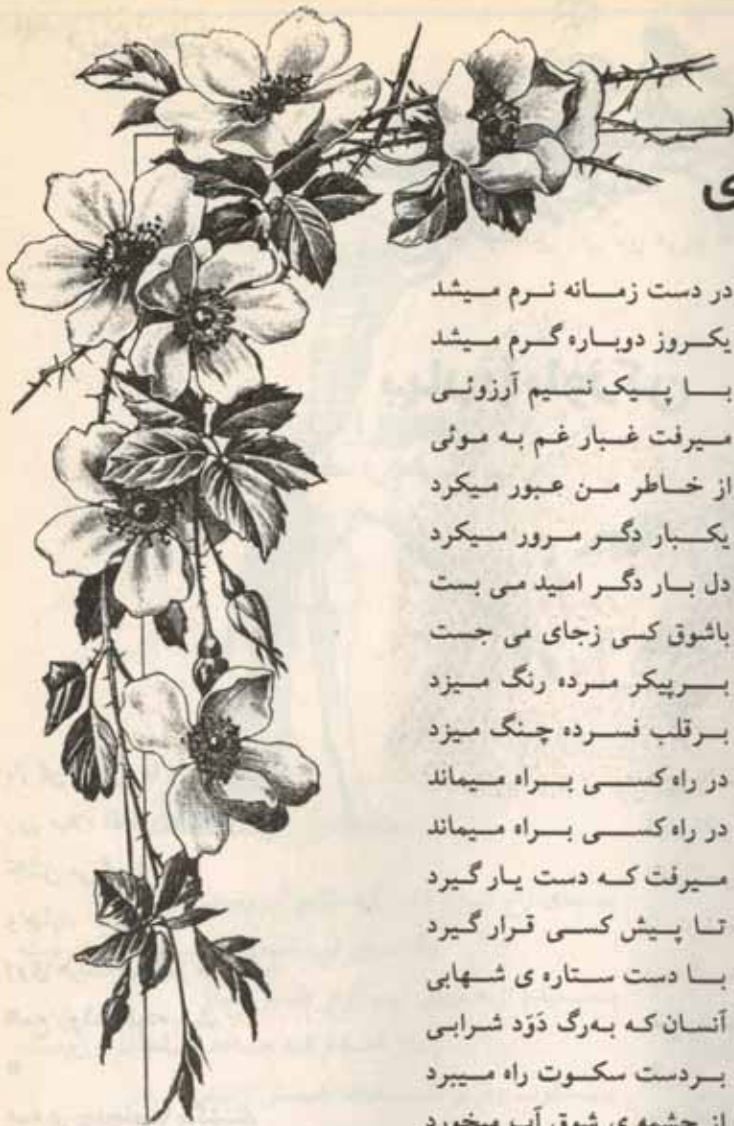 در دست زمانه نرم میشد
یکروز دوباره گرم میشد
با پیک نسیم آرزوئی
میرفت غبار غم به موئی
از خاطر من عبور میکرد
یکبار دگر مرور میکرد
دل بار دگر امید می بست
باشوق کسی زجای می جست
برپیکر مرده رنگ میزد
برقلب فسرده چنگ میزد
در راه کسی براه میماند
در راه کسی براه میماند
میرفت که دست یار گیرد
تا پیش کسی قرار گیرد
با دست ستاره ی شهابی
آنسان که به‌رگ دَوَد شرابی
بردست سکوت راه میبرد
از چشمه ی شوق آب میخورد